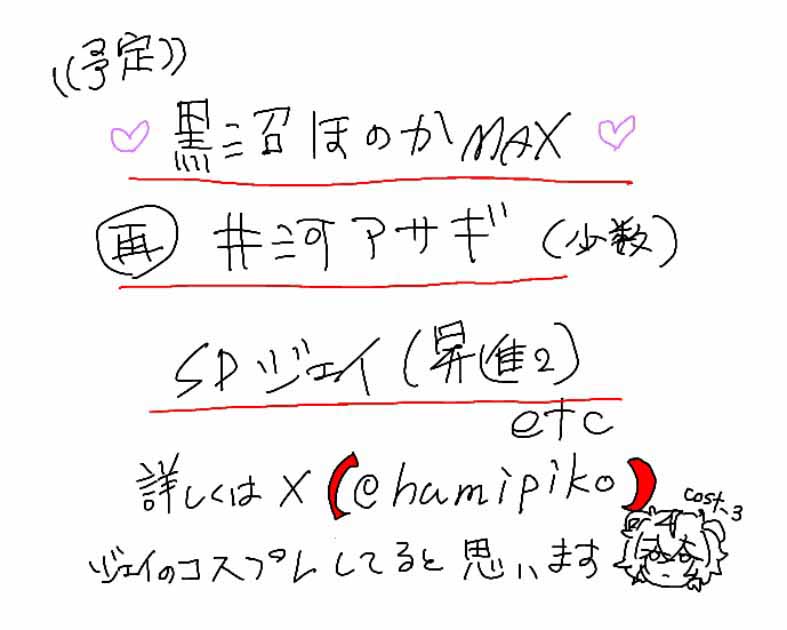 ((予定))
♡ 黒沼ほのかMAX ♡
再 井河アサギ (少数)
SDジェイ(昇進2)
etc
詳しくはX(@hamipiko)
cost-3
ジェイのコスプレしてると思います